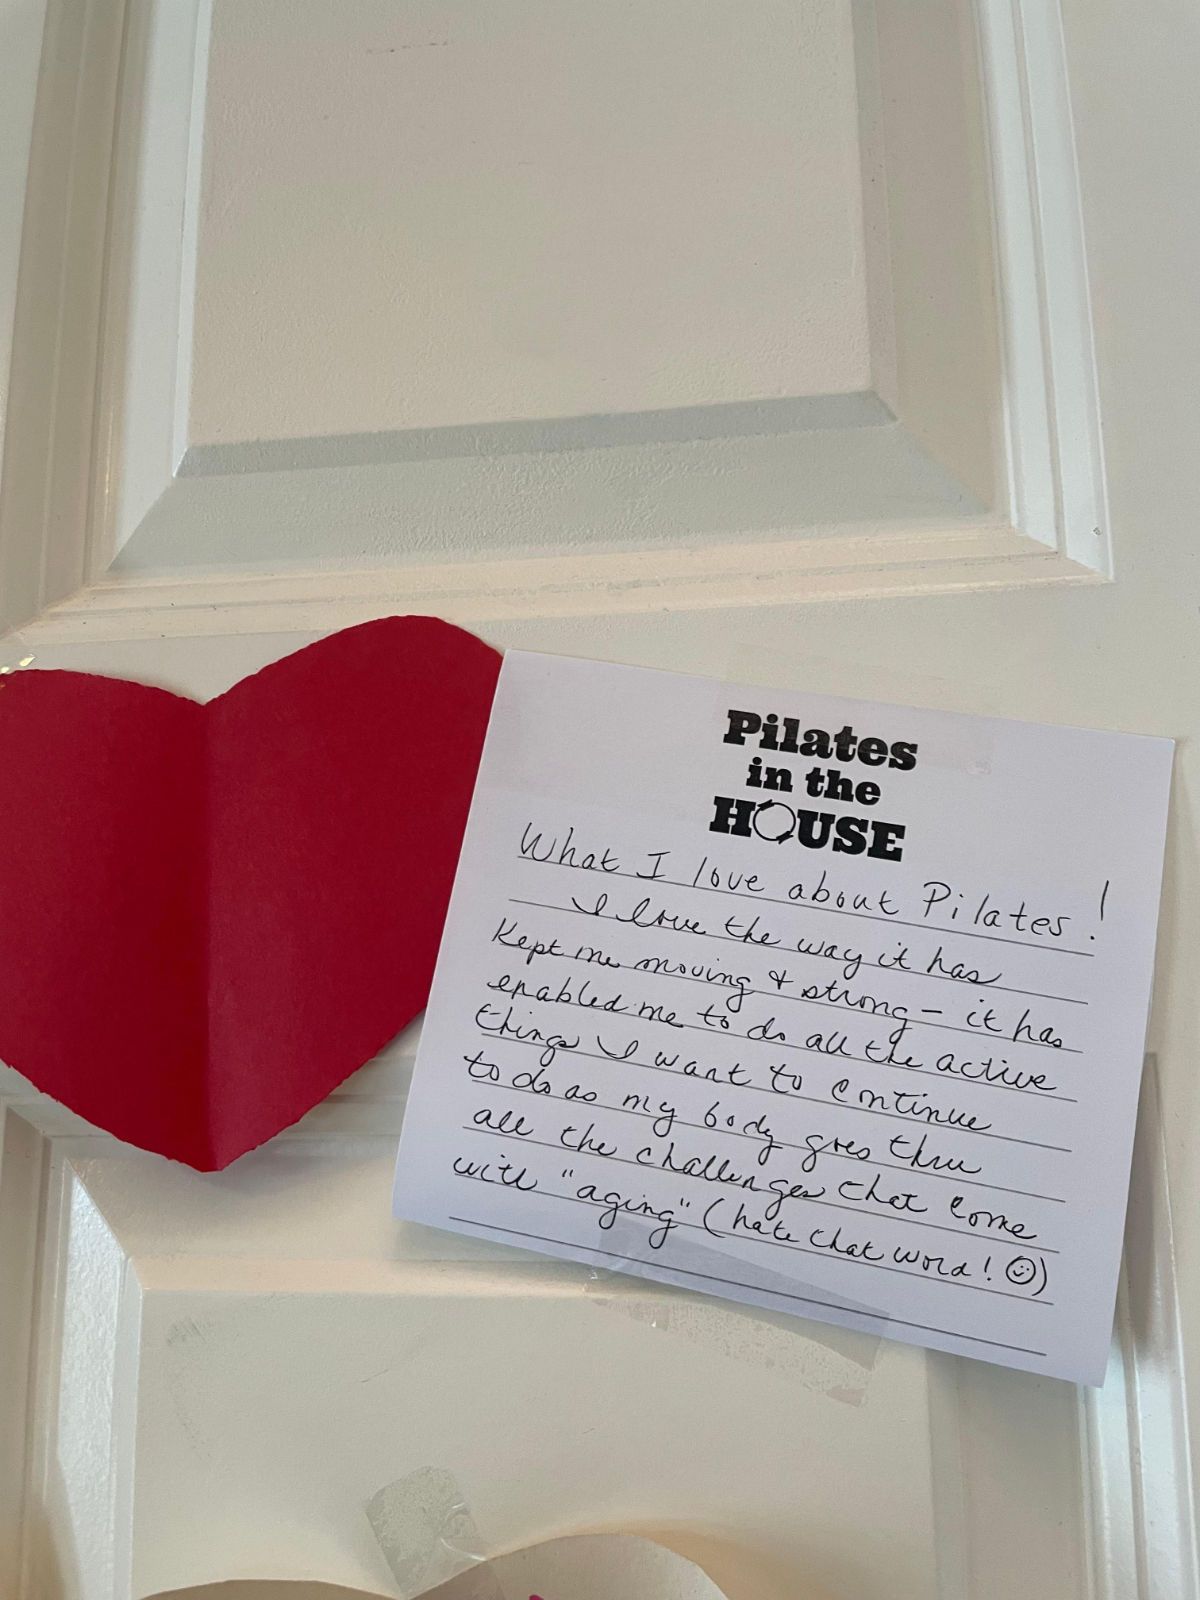 Pilates
in the
HOUSE
What I love about Pilates!
I love the way it has
Kept me moving & strong – it has
enabled me to do all the active
things I want to continue
to do as my body goes thru
all the challenges that come
with "aging" (hate that word! ☺)